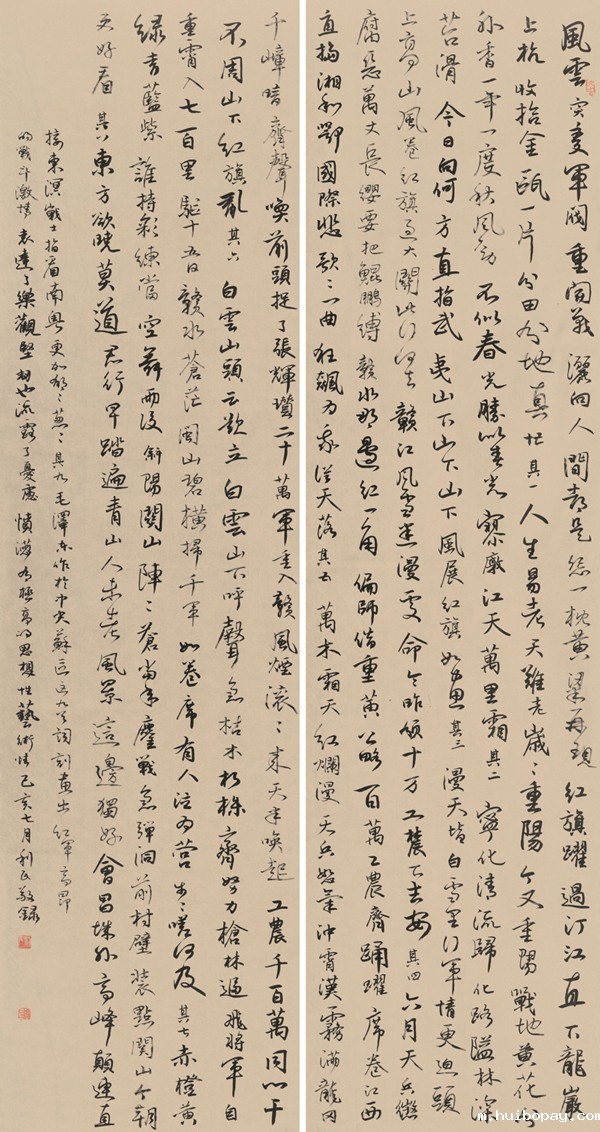 風雲突變軍閥重開戰灑向人間都是怨一枕黃粱再現紅旗躍過汀江直下龍巖
上杭收拾金甌一片分田分地真忙其一人生易老天難老歲〻重陽今又重陽戰地黃花分
外香一年一度秋風勁不似春光勝似春光寥廓江天萬里霜其二寧化清流歸化路隘林深
苔滑今日向何方直指武夷山下山下山下風展紅旗如畫其三漫天皆白雪里行軍情更迫頭
上高山風卷紅旗過大關此行何去贛江風雪迷漫處命令昨頒十万工農下吉安其四六月天兵征
腐惡萬丈長纓要把鯤鵬縛贛水那邊紅一角偏師借重黃公略百萬工農齊踴躍席卷江西
直搗湘和鄂國際悲歌〻一曲狂飆為我從天落其五萬木霜天紅爛漫天兵怒氣沖霄漢霧滿龍岡
千嶂暗齊聲喚前頭捉了張輝瓚二十萬軍重入贛風煙滾〻來天半喚起工農千百萬同心干
不周山下紅旗亂其六白雲山頭云欲立白雲山下呼聲急枯木朽株齊努力槍林逼飛將軍自
重霄入七百里驅十五日贛水蒼茫閩山碧橫掃千軍如卷席有人泣為營步〻嗟何及其七赤橙黃
綠青藍紫誰持彩練當空舞雨後斜陽關山陣〻蒼當年鏖戰急彈洞前村壁裝點關山今朝
更好看其八東方欲曉莫道君行早踏遍青山人未老風景這邊獨好會昌城外高峰顛連直
接東溟戰士指看南粵更加郁〻葱〻其九毛澤東作於中央蘇區這九首詞刻畫出紅軍高昂
的戰斗激情表達了樂觀堅韌也流露了憂慮憤懣有極高的思想性藝術性己亥七月利民敬錄
m.huibopay.com